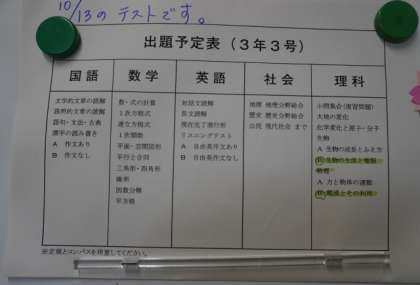 10/13のテストです。
出題予定表(3年3号)
国語
文学的文章の読解
説明的文章の読解
語句・文法・古典
漢字の読み書き
A 作文あり
B 作文なし
数学
数・式の計算
1次方程式
連立方程式
1次関数
平面・空間図形
平行と合同
三角形・四角形
確率
因数分解
平方根
英語
対話文読解
長文読解
現在完了進行形
リスニングテスト
A 自由英作文あり
B 自由英作文なし
社会
地理 地理分野総合
歴史 歴史分野総合
公民 現代社会 まで
理科
小問集合(復習問題)
大地の変化
化学変化と原子・分子
生物
A 生物の成長とふえ方
A 力と物体の運動
※定規とコンパスを用意してください。